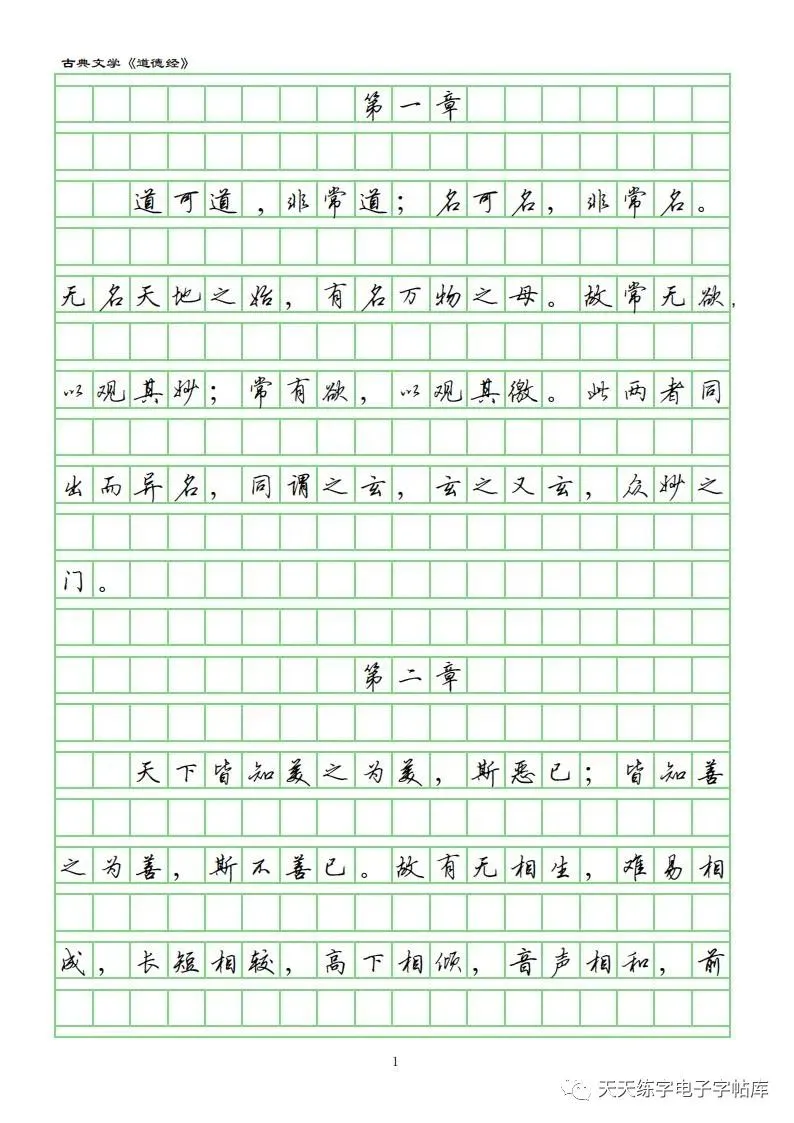 古典文学《道德经》
第一章
道可道，非常道；名可名，非常名。
无名天地之始，有名万物之母。故常无欲，
以观其妙；常有欲，以观其徼。此两者同
出而异名，同谓之玄，玄之又玄，众妙之
门。
第二章
天下皆知美之为美，斯恶已；皆知善
之为善，斯不善已。故有无相生，难易相
成，长短相较，高下相倾，音声相和，前
1
天天练字电子字帖库